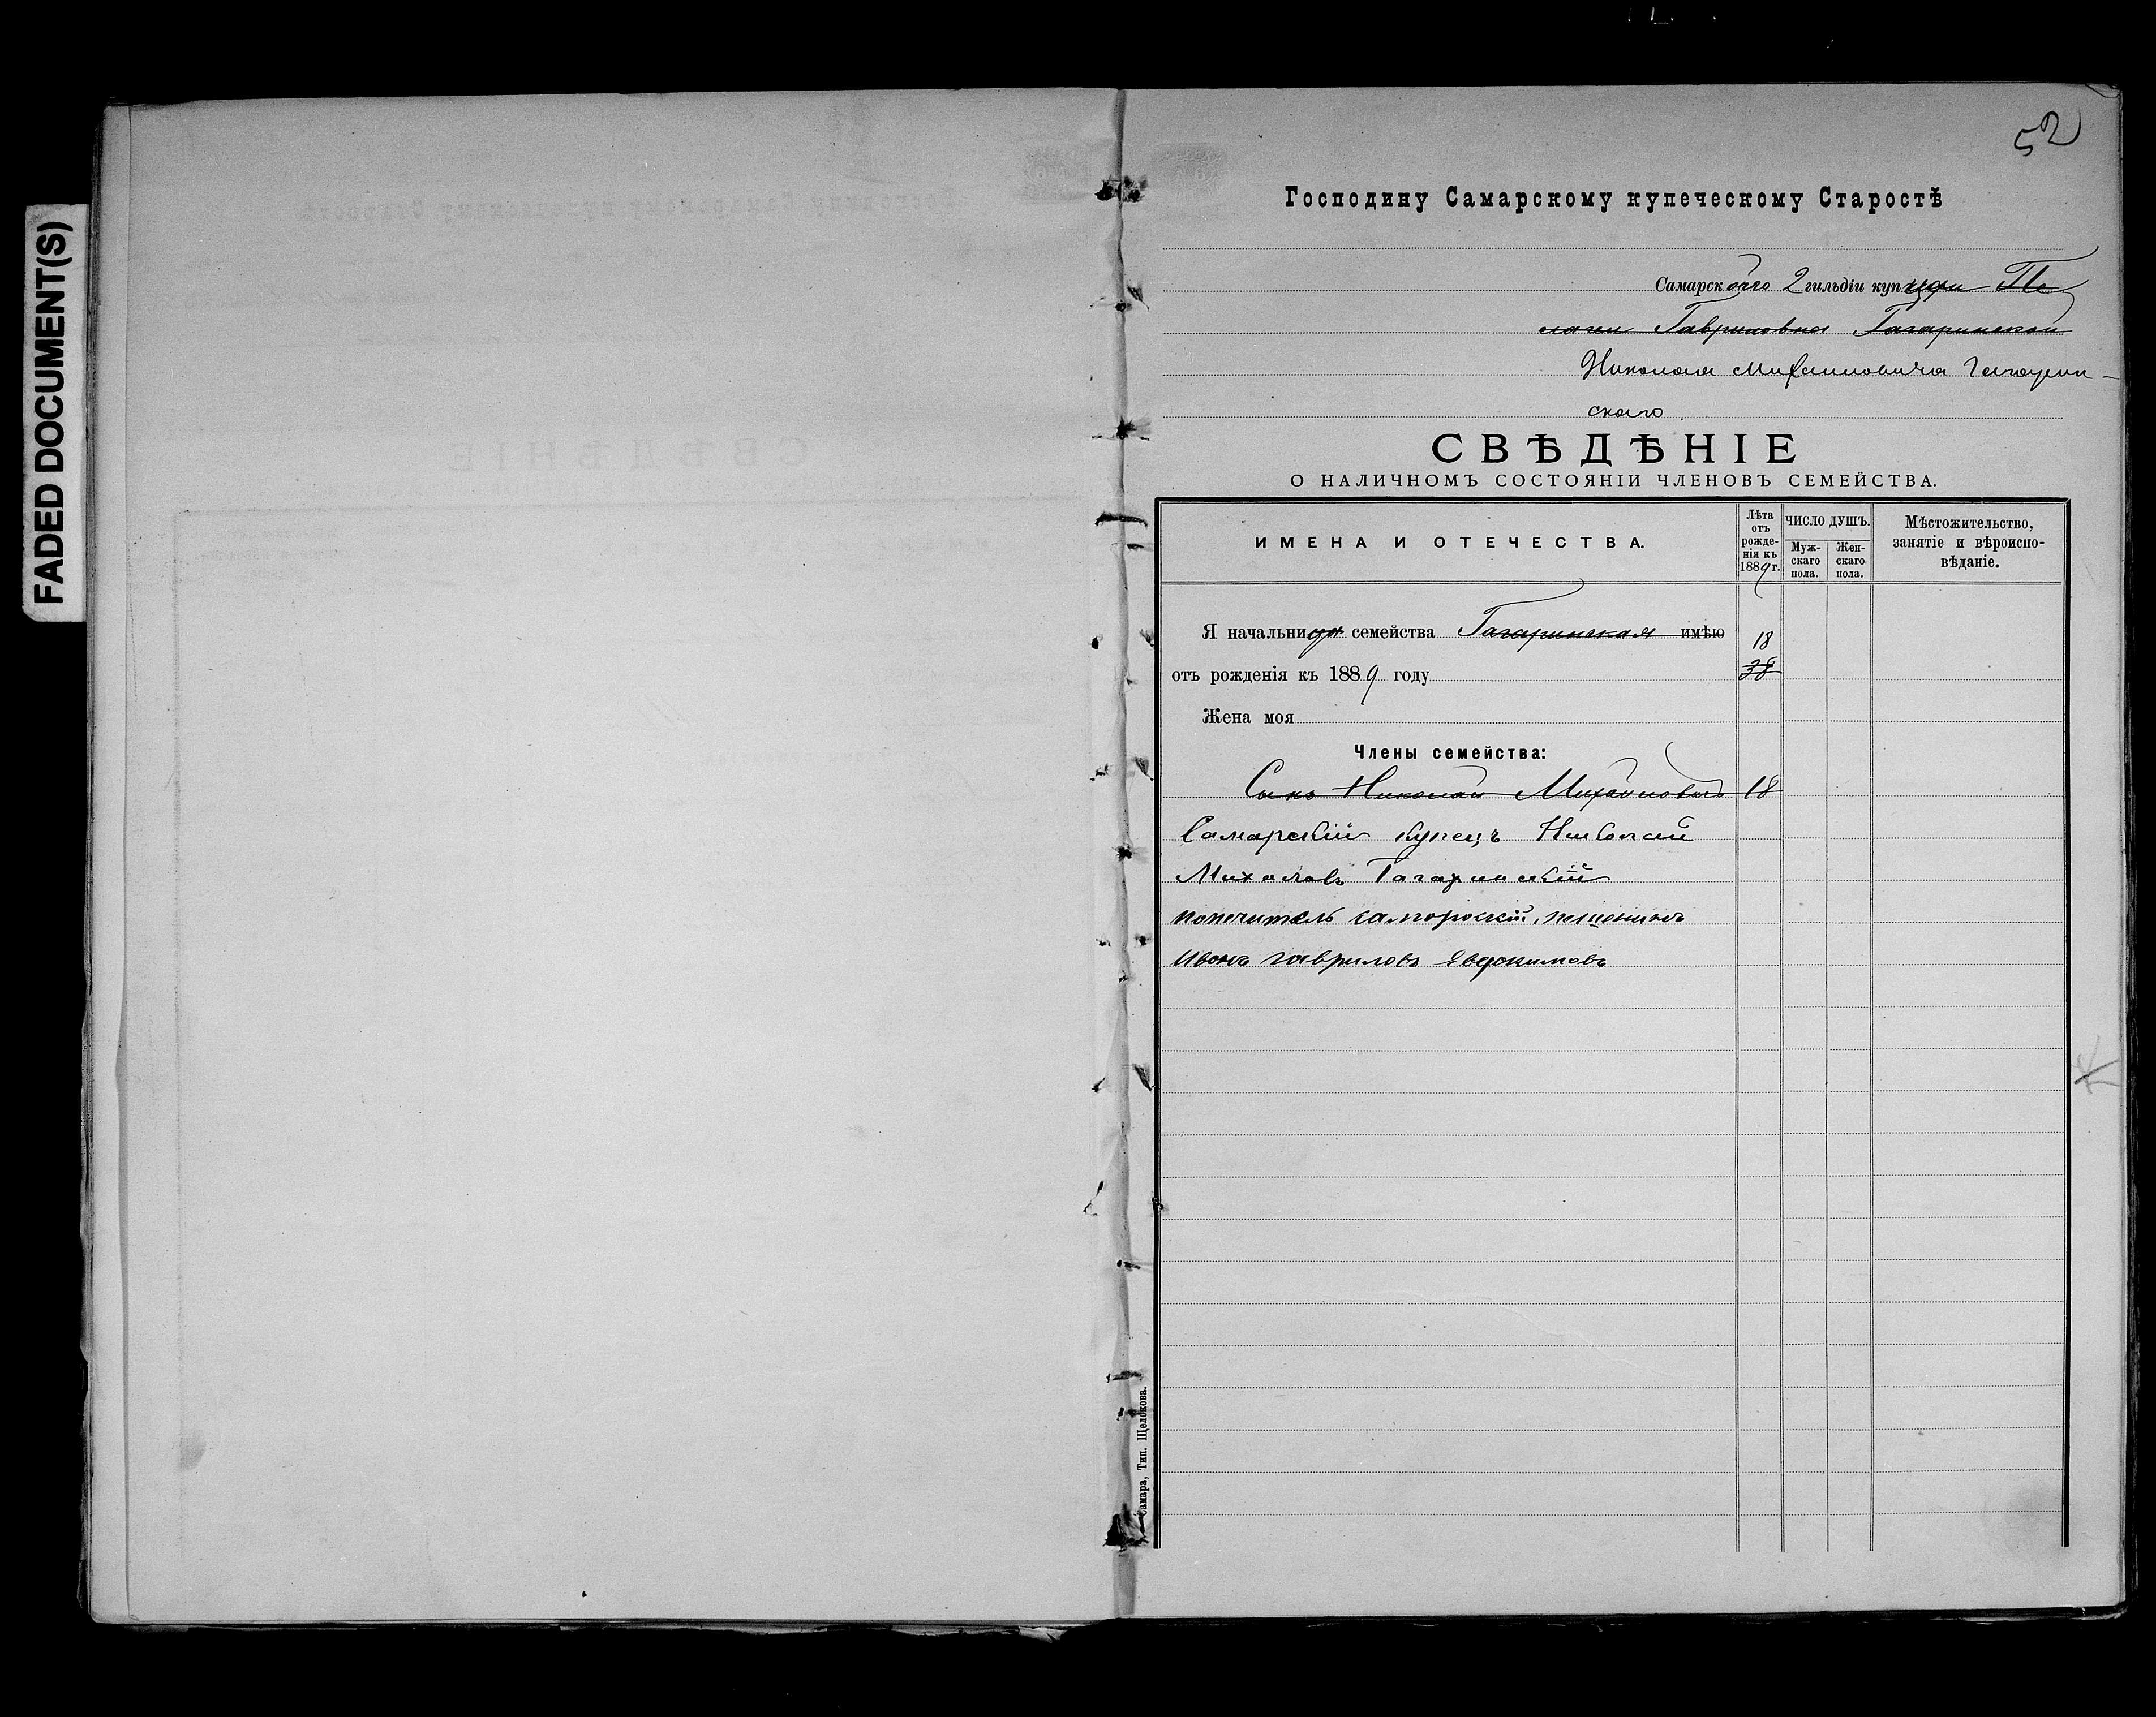 FADED DOCUMENT(S)
52
Господину Самарскому купеческому Старостѣ
Самарскаго 2 гильдіи купца Пе
лагеи Гавриловна Гагаринской
Николая Михаиловича Гагарин-
скаго
СВѢДѢНІЕ
О НАЛИЧНОМЪ СОСТОЯНІИ ЧЛЕНОВЪ СЕМЕЙСТВА.
ИМЕНА И ОТЕЧЕСТВА.
Лѣта отъ рожде-нія къ 1889 г.
ЧИСЛО ДУШЪ.
Муж-скаго пола.
Жен-скаго пола.
Мѣстожительство, занятіе и вѣроиспо-вѣданіе.
Я начальница семейства Гагаринская имѣю 18
отъ рожденія къ 1889 году 38
Жена моя
Члены семейства:
Сынъ Николай Михайловичъ 18
Самарскій Купецъ Николай
Михаловъ Гагаринскій
попечитель самарскій мещенинъ
Иванъ гавриловъ Евдокимовъ
Самара, Тип. Щелокова.